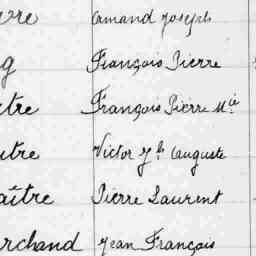 vre Amand Joseph
g François Pierre
itre François Pierre M<sup>ie</sup>
utre Victor J<sup>h</sup> Auguste
aître Pierre Laurent
archand Jean François